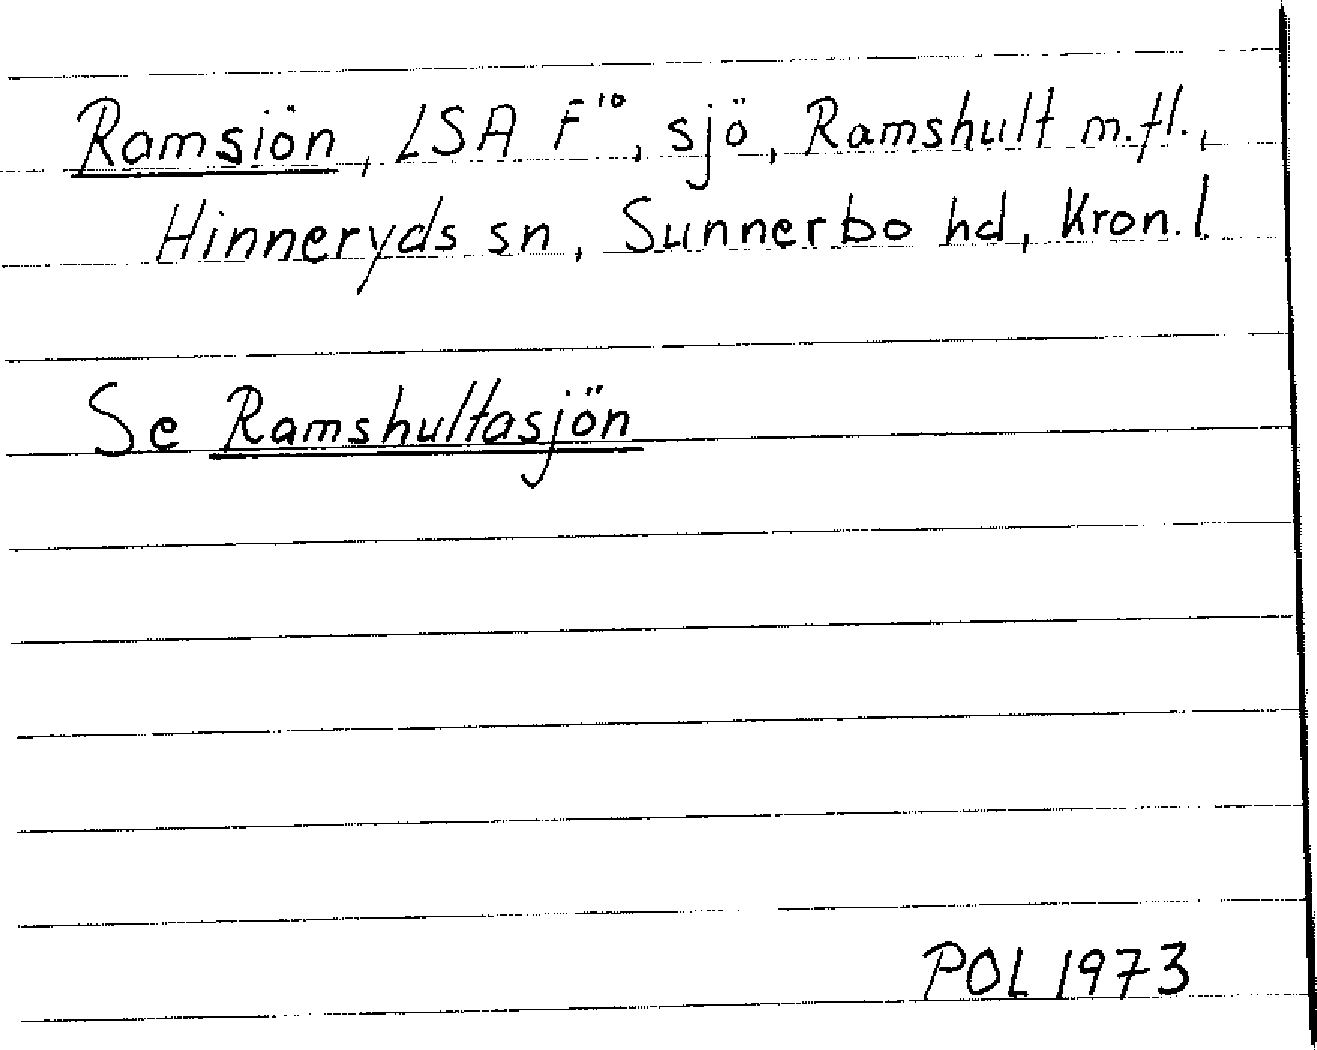 Ramsiön, LSA F¹⁰, sjö, Ramshult m.fl.,
Hinneryds sn, Sunnerbo hd, Kron. l
Se Ramshultasjön
POL 1973